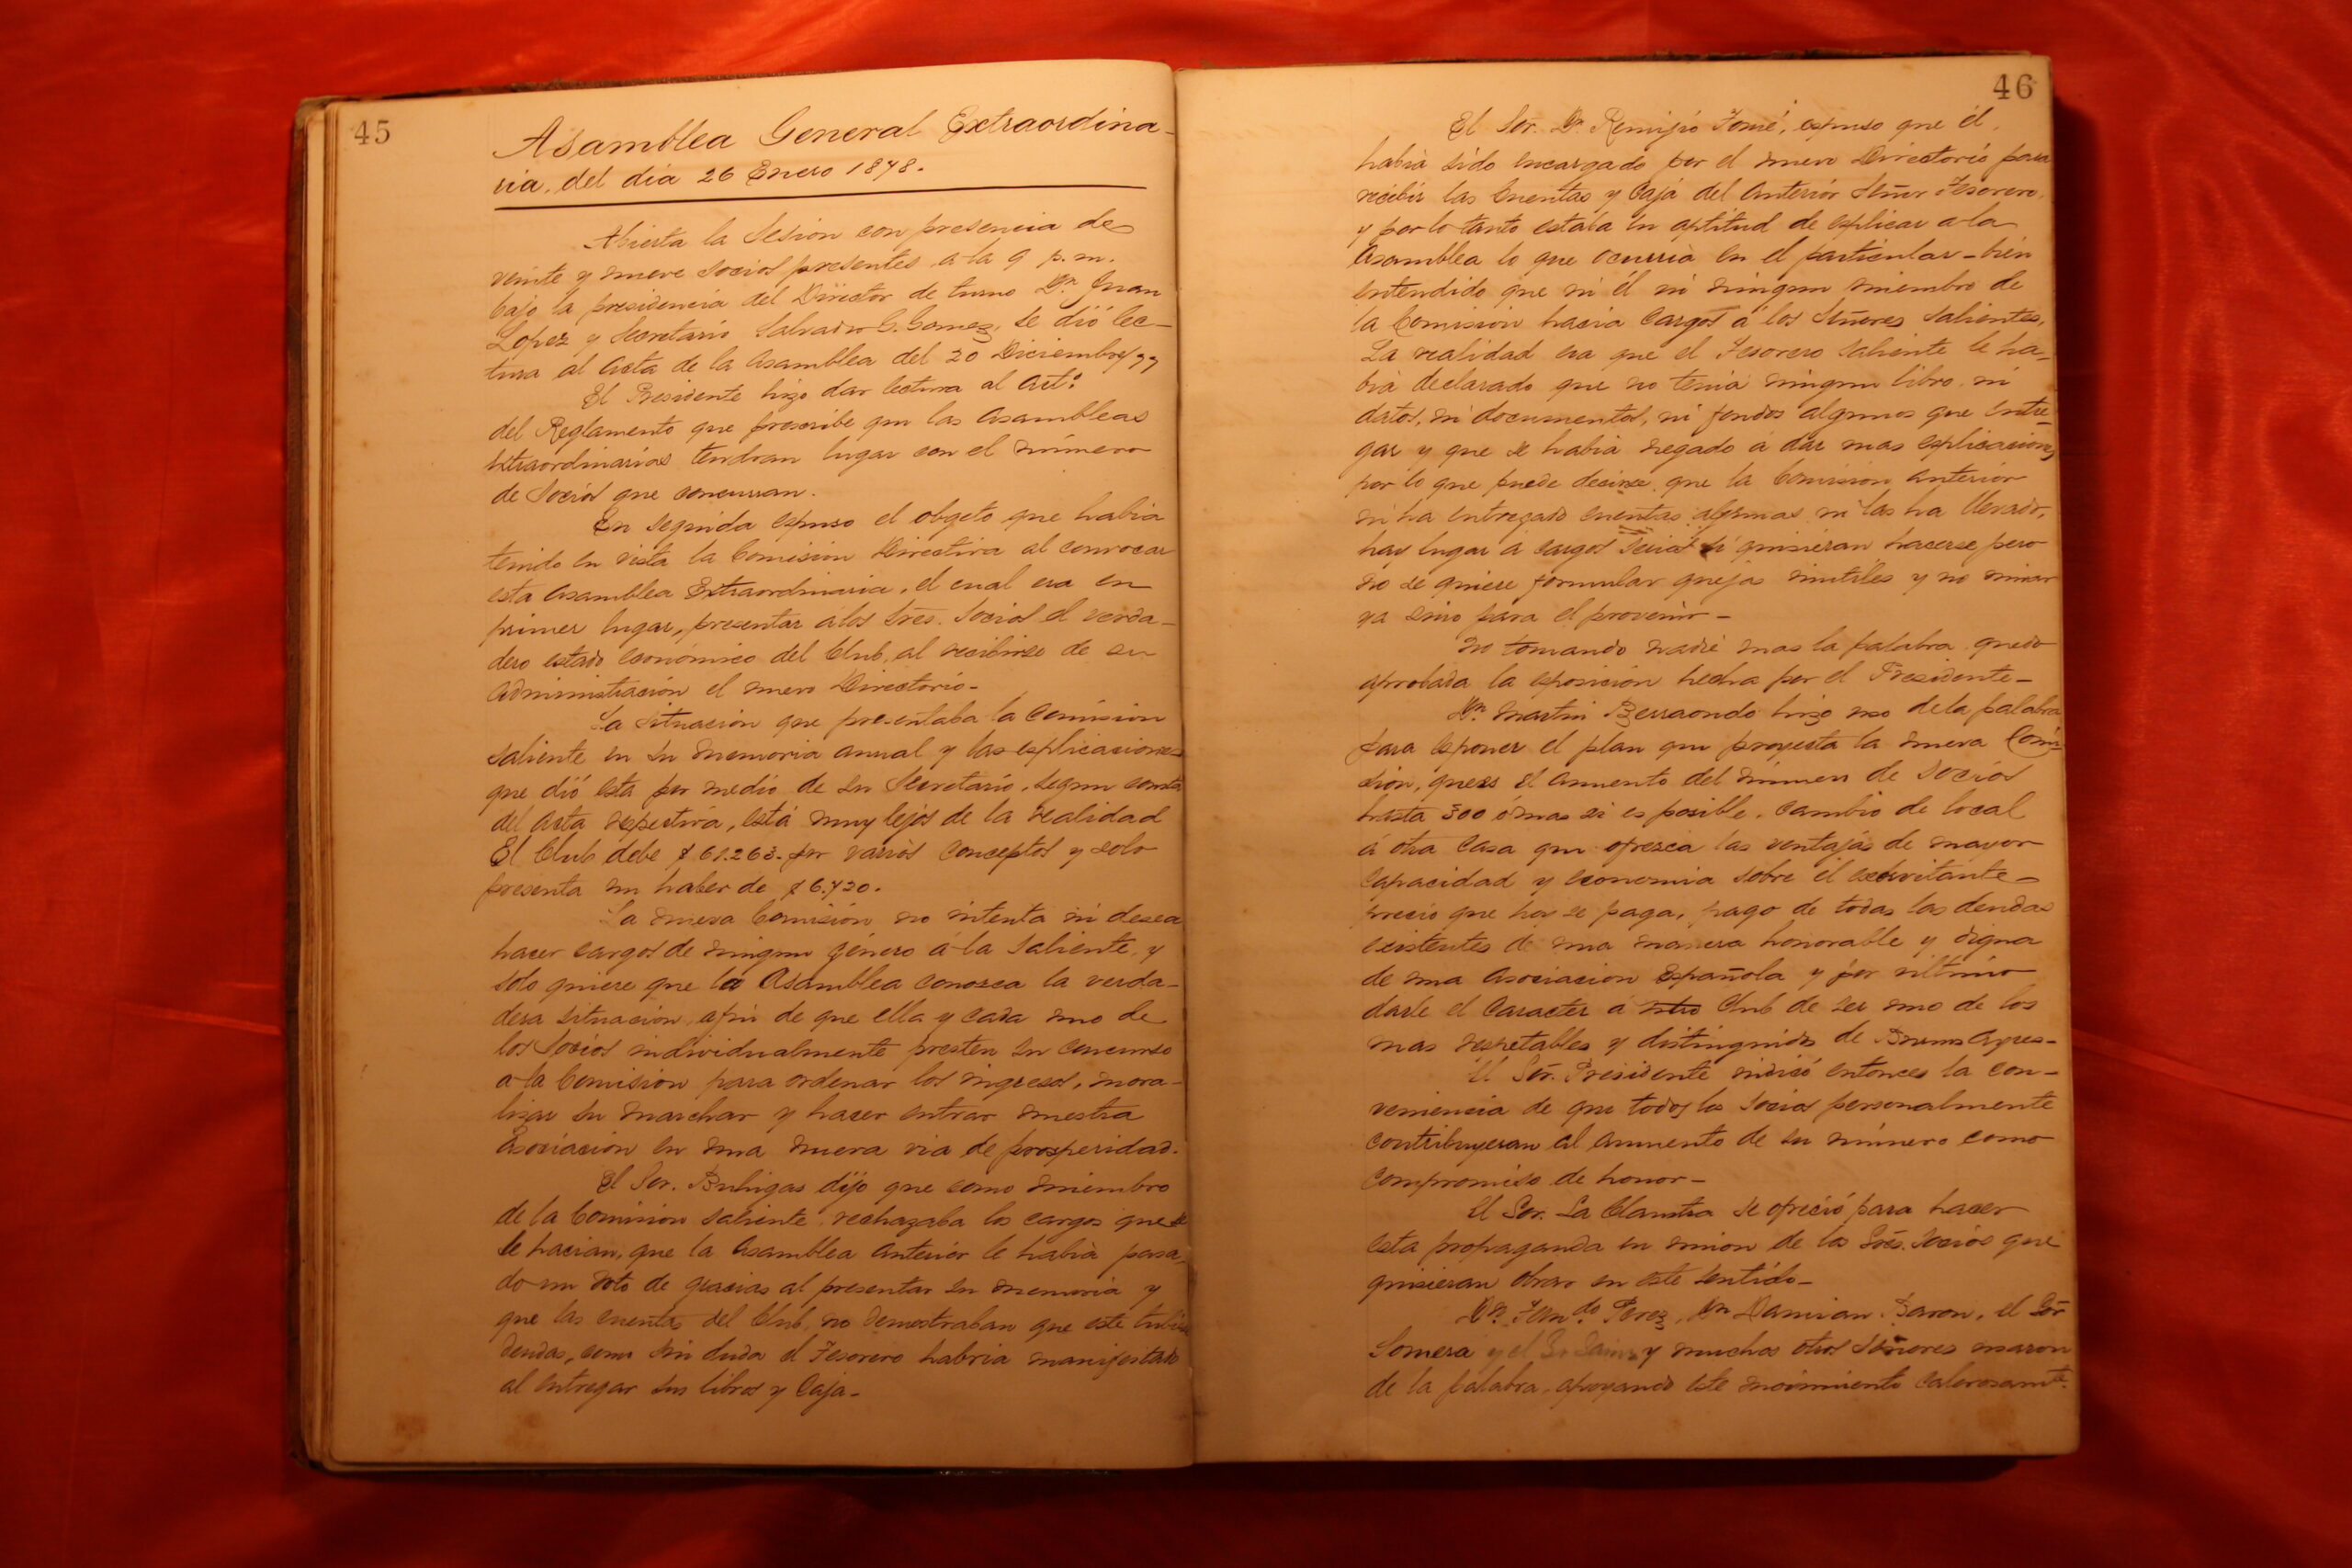 45
Asamblea General Extraordina-
ria, del dia 26 Enero 1878.
Abierta la Sesion con presencia de
veinte y nueve socios presentes a la 9 p.m.
bajo la presidencia del Director de turno Dn Juan
Lopez y Secretario Salvador C. Gomez, se dió lec-
tura al acta de la asamblea del 20 Diciembre/77
El Presidente hizo dar lectura al Art:
del Reglamento que prescribe que las asambleas
extraordinarias tendran lugar con el número
de Socios que concurran.
En seguida espuso el obgeto que habia
tenido en vista la Comision Directiva al convocar
esta asamblea Extraordinaria, el cual era en
primer lugar, presentar a los Sres. Socios el verda-
dero estado económico del Club, al recibirse de su
administracion el nuevo Directorio-
La situacion que presentaba la Comision
saliente en su memoria anual y las esplicaciones
que dió esta por medio de su Secretario, segun consta
del acta respectiva, está muy lejos de la realidad
El Club debe $ 61.263. por varios conceptos y solo
presenta un haber de $ 6.720.
La nueva Comisión no intenta ni desea
hacer cargos de ningun género á la saliente, y
solo quiere que la Asamblea conosca la verda-
dera situacion, afin de que ella y cada uno de
los Socios individualmente presten su concurso
a la Comision para ordenar los ingresos, mora-
lizar su marchar y hacer entrar nuestra
asociacion en una nueva via de prosperidad.
El Sor. Buhigas dijo que como miembro
de la Comision saliente rechazaba los cargos que se
le hacian, que la asamblea anterior le habia pasa-
do un voto de gracias al presentar su memoria y
que las cuentas del Club, no demostraban que este
deudas, como sin duda el Tesorero habria manifestado
al entregar sus libros y Caja-
46
El Sor. Dn Remijio Tomé, espuso que él,
habia sido encargado por el nuevo Directorio para
recibir las Cuentas y Caja del anterior Señor Tesorero,
y por lo tanto estaba en aptitud de esplicar a la
asamblea lo que ocurria en el particular - bien
entendido que ni él ni ningun miembro de
la Comision hacia Cargos á los Señores salientes,
La realidad era que el Tesorero saliente le ha-
bia declarado que no tenia ningun libro, ni
datos, ni documentos, ni fondos algunos que entre-
gar y que se habia negado á dar mas esplicaciones
por lo que puede decirse que la Comision anterior
ni ha entregado cuentas algunas ni las ha llevado,
hay lugar á cargos serios si quisieran hacerse pero
no se quiere formular quejas inutiles y no mirar
ya sino para el provenir -
No tomando nadie mas la palabra quedo
aprobada la esposición hecha por el Presidente -
Dn Martin Berraondo hizo uso de la palabra
para esponer el plan que proyecta la nueva Comi-
sion, que es el aumento del número de socios
hasta 300 ó mas si es posible, cambio de local
á otra casa que ofresca las ventajas de mayor
capacidad y economia sobre el exhorbitante
precio que hoy se paga, pago de todas las deudas
existentes de una manera honorable y digna
de una asociacion Española y por ultimo
darle el Caracter á ntro Club de ser uno de los
mas respetables y distinguidos de Buenos Ayres-
El Sor. Presidente indicó entonces la con-
veniencia de que todos los Socios personalmente
contribuyeran al aumento de su número como
compromiso de honor -
El Sor. La Claustra se ofreció para hacer
esta propaganda en union de los Sres. Socios que
quisieran obrar en este sentido -
Dn Fern.do Perez, Dn Damian Baron, el Sor
Somera y el Sr y muchos otros Señores usaron
de la palabra, apoyando este movimiento calorosamte.